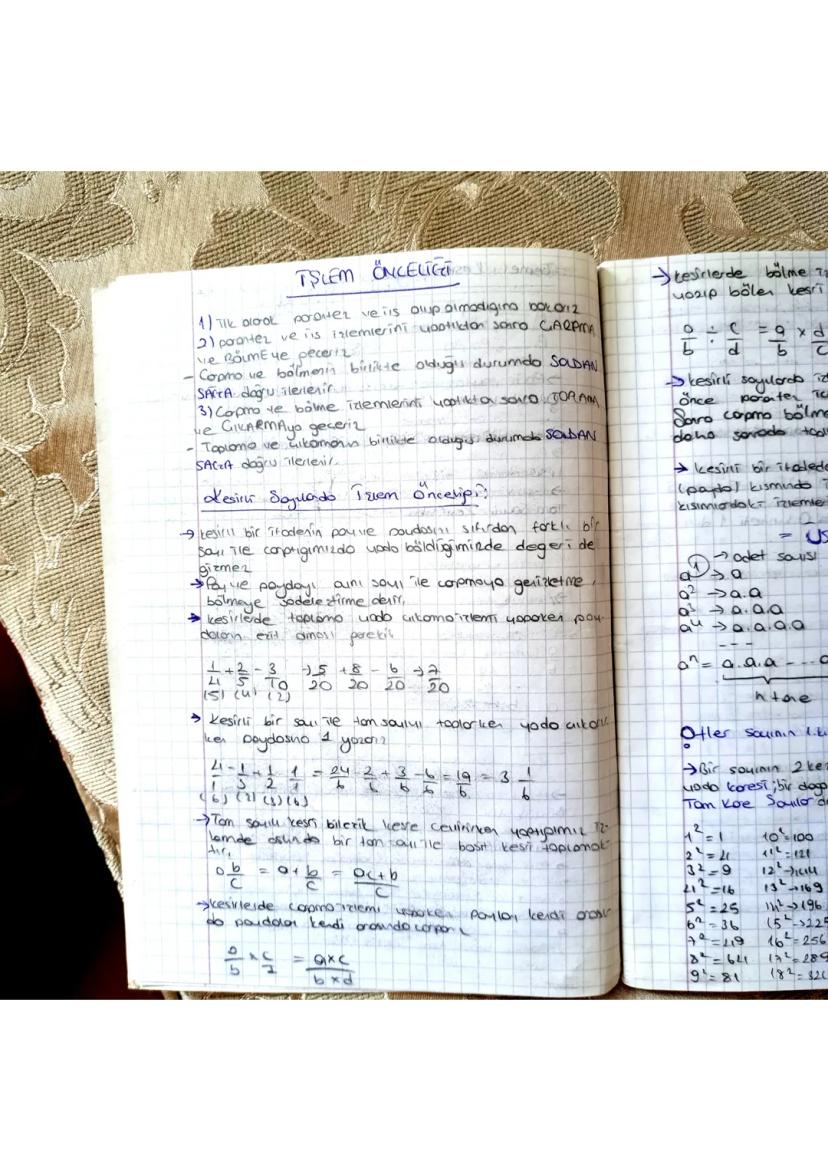 İŞLEM ÖNCELİĞİ
1) İlk olarak parantez ve üs olup olmadığına bakarız
2) parantez ve üs işlemlerini yaptıktan sonra ÇARPMA
ve BÖLMEye geçeriz
- Çarpma ve bölmenin birlikte olduğu durumda SOLDAN
SAĞA doğru ilerlenir.
3) Çarpma ve bölme işlemlerini yaptıktan sonra TOPLAMA
ve ÇIKARMAya geçeriz
- Toplama ve çıkarmanın birlikte olduğu durumda SOLDAN
SAĞA doğru ilerlenir.
Kesirli Sayılarda İşlem Önceliği:
→ kesirli bir ifadenin pay ve paydasını sıfırdan farklı bir
sayı ile çarptığımızda yada böldiğimizde değeri de
ğizmez
→ Pay ve paydayı aynı sayı ile çarpmaya genişletme,
bölmeye sadeleştirme denir.
→ kesirlerde toplama yada çıkarma işlemi yaparken pay-
daların eşit olması gerekir
1/4 + 2/5 - 3/10 → 5/20 + 8/20 - 6/20 → 7/20
(5) (4) (2)
→ Kesirli bir sayı ile tam sayıyı toplarken yada çıkarır
ken paydasına 1 yazarız
4/1 - 1/3 + 1/2 - 1/1 = 24/6 - 2/6 + 3/6 - 6/6 = 19/6 = 3 1/6
(6) (2) (3) (6)
→ Tam sayılı kesri bileşik kesre çevirirken yaptığımız iş-
lemde aslında bir tam sayı ile basit kesri toplamak
tır.
a b/c = a + b/c = ac+b/c
→ kesirlerde çarpma işlemi yaparken paylar kendi arasın
da paydalar kendi arasında çarparız
a/b x c/d = axc/bxd
→ kesirlerde bölme
yazıp bölen kesri
a/b ÷ c/d = a/b x d/c
→ kesirli sayılarda
önce parantez
Sonra çarpma bölme
daha sonrada
→ kesirli bir ifadede
(payda) kısmında
kısımlardaki işlemler
= ÜS
→ adet sayısı
a¹ → a
a² → a.a
a³ → a.a.a
a⁴ → a.a.a.a
---
aⁿ = a.a.a ----
n tane
sayının
→ Bir sayının 2
yada karesi; bir doğ
Tam Kare Sayılar
1² = 1 10² = 100
2² = 4 11² = 121
3² = 9 12² → 144
4² = 16 13² → 169
5² = 25 14² → 196
6² = 36 15² → 225
7² = 49 16² = 256
8² = 64 17² = 289
9² = 81 18² = 324